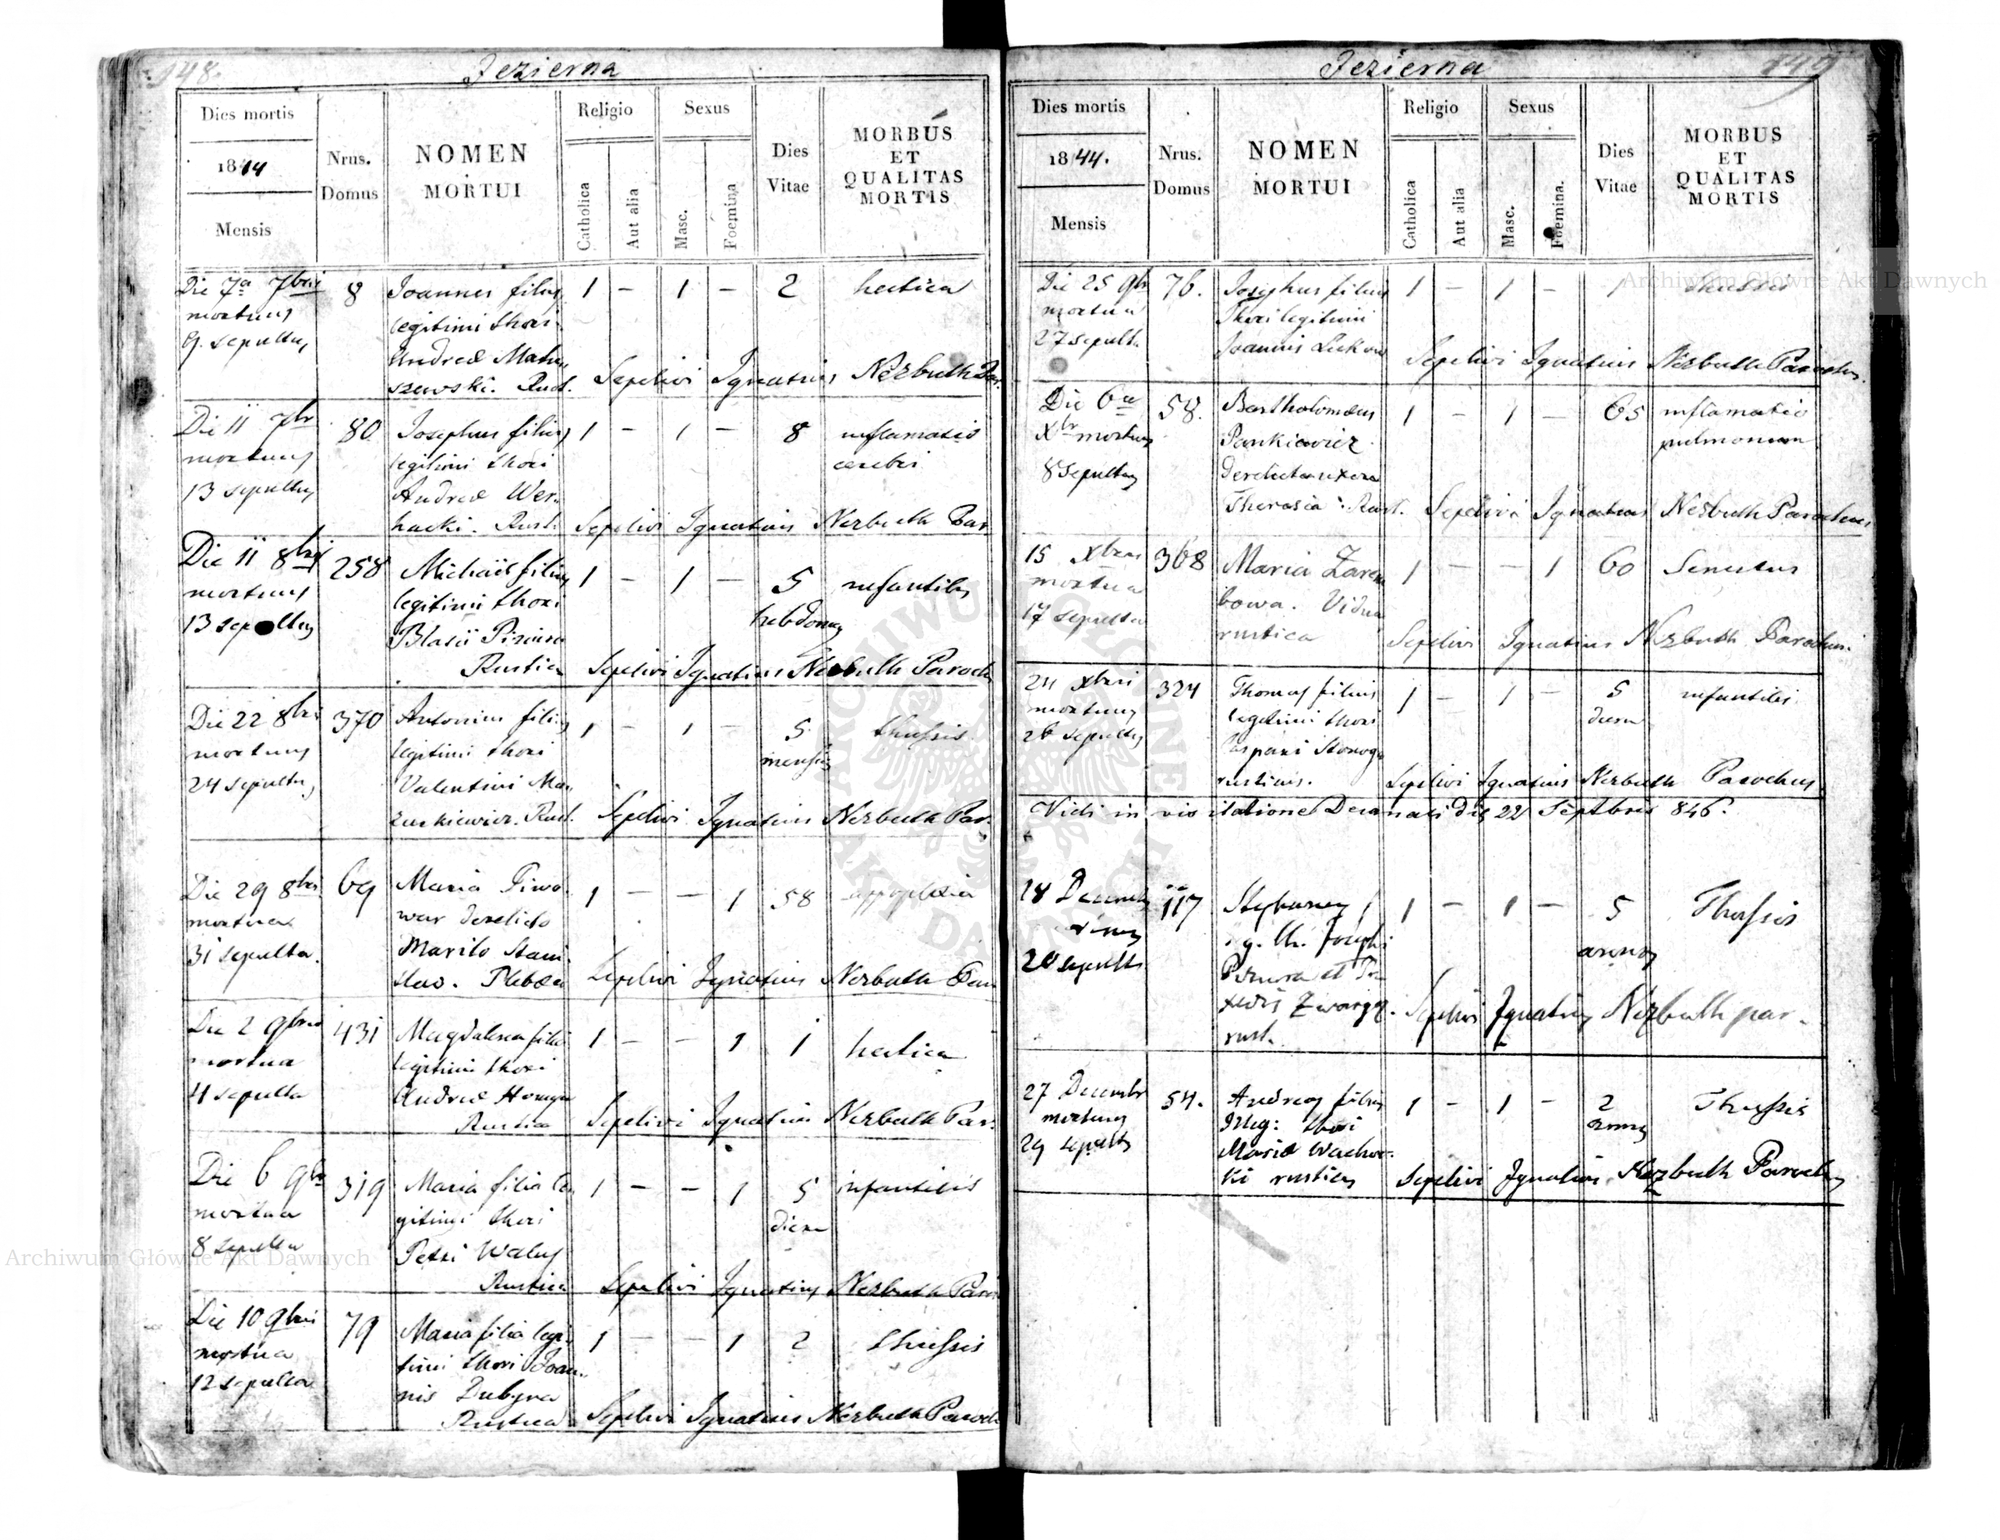 148.
Jezierna
Dies mortis
1844
Mensis
Nrus.
Domus
NOMEN
MORTUI
Religio
Catholica
Aut alia
Sexus
Masc.
Foemina
Dies
Vitae
MORBUS
ET
QUALITAS
MORTIS
Die 7a 7bris
mortuus
9. sepultus
8
Joannes filius
legitimi thori
Andreæ
szewski. Rust.
1 - 1 - 2
hectica
Sepelivi Ignatius Nezbuth Par.
Die 11 7br
mortuus
13 sepultus
80
Josephus filius
legitimi thori
Andreæ Wer-
hacki. Rusti
1 - 1 - 8
inflamatio
cerebri
Sepelivi Ignatius Nezbuth Par.
Die 11 8bris
mortuus
13 sepultus
258
Michaël filius
legitimi thori
Blasii
Rustica
1 - 1 - 5
hebdomas
infantilis
Sepelivi Ignatius Nezbuth Paroch
Die 22 8bris
mortuus
24 sepultus
370
Antonius filius
legitimi thori
Valentini Ma-
zurkiewicz. Rust.
1 - 1 - 5
mensis
thussis
Sepelivi Ignatius Nezbuth Par.
Die 29 8bris
mortua
31 sepulta.
69
Maria Piwo-
war derelicto
Marito Stani-
slao. Plebea
1 - - 1 58
appoplexia
Sepelivi Ignatius Nezbuth Par
Die 2 9bris
mortua
4 sepulta
431
Magdalena filia
legitimi thori
Andreæ
Rustica
1 - - 1 1
hectica
Sepelivi Ignatius Nezbuth Par.
Die 6 9br
mortua
8 sepulta
319
Maria filia le-
gitimi thori
Petri Walus
Rustica
1 - - 1 5
dierum
infantilis
Sepelivi Ignatius Nezbuth Par
Die 10 9bris
mortua
12 sepulta
79
Maria filia legi-
timi thori Joan-
nis Dubyna
Rustica
1 - - 1 2
thussis
Sepelivi Ignatius Nezbuth Paroch
149
Jezierna
Dies mortis
1844.
Mensis
Nrus.
Domus
NOMEN
MORTUI
Religio
Catholica
Aut alia
Sexus
Masc.
Foemina.
Dies
Vitae
MORBUS
ET
QUALITAS
MORTIS
Die 25 9br
mortua
27 sepulta
76.
Josephus filius
Thori legitimi
Joannis
1 - 1 - 1
thussis
Sepelivi Ignatius Nezbuth Parochus.
Die 6a
Xbr mortuus
8 sepultus
58.
Bartholomæus
Pankiewicz
derelicta uxore
Theresia: Rust.
1 - 1 - 65
inflamatio
pulmonum
Sepelivi Ignatius Nezbuth Parochus
15 Xbris
mortua
17 sepulta
368
Maria Zarem-
bowa. Vidua
rustica
1 - - 1 60
Senectus
Sepelivi Ignatius Nezbuth Parochus.
24 Xbris
mortuus
26 sepultus
324
Thomas filius
legitimi thori
Caspari Stonoga
rusticus.
1 - 1 - 5
dierum
infantilis
Sepelivi Ignatius Nezbuth Parochus
Vidi in visitatione Decanali die 22 Septbris 846.
18 Decemb
20 sepultus
117
Stephanus f
g. th. Josephi
et Pa-
xedis
rust.
1 - 1 - 5
annos
Thussis
Sepelivi Ignatius Nezbuth par.
27 Decembr
mortuus
29 sepultus
54.
Andreas filius
Illeg: thori
Mariæ Wachow-
ki rusticus
1 - 1 - 2
annos
Thussis
Sepelivi Ignatius Nezbuth Parochus
Archiwum Główne Akt Dawnych
Archiwum Główne Akt Dawnych
ARCHIWUM GŁÓWNE
AKT DAWNYCH